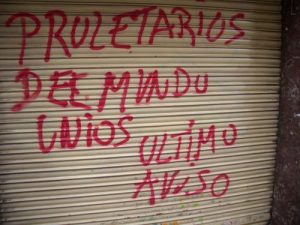 PRULETARIOS
DEL MUNDU
UNIOS
ULTIMO
AVISO